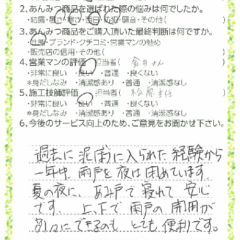 2.あんみつ商品を選ばれた際の悩みは何でしたか。
3.あんみつ商品をご購入頂いた最終判断は何ですか。
・ブランド・クチコミ・営業マンの勧め
・販売店の信用・その他(　)
4.営業マンの評価　担当者(　)
・非常に良い　・良い　・普通　・良くない
＊身だしなみ　・清潔感あり　・普通　・清潔感なし
5.施工技師評価　担当者(　)
・非常に良い　・良い　・普通　・良くない
＊身だしなみ　・清潔感あり　・普通　・清潔感なし
6.今後のサービス向上のため、ご意見をお聞かせ下さい。
過去に泥ぼうに入られた経験から
一年中、雨戸を夜は閉めています。
夏の夜に、あみ戸で寝れて安心
です。上、下で雨戸の開閉が
別々にできるのもとても便利です。